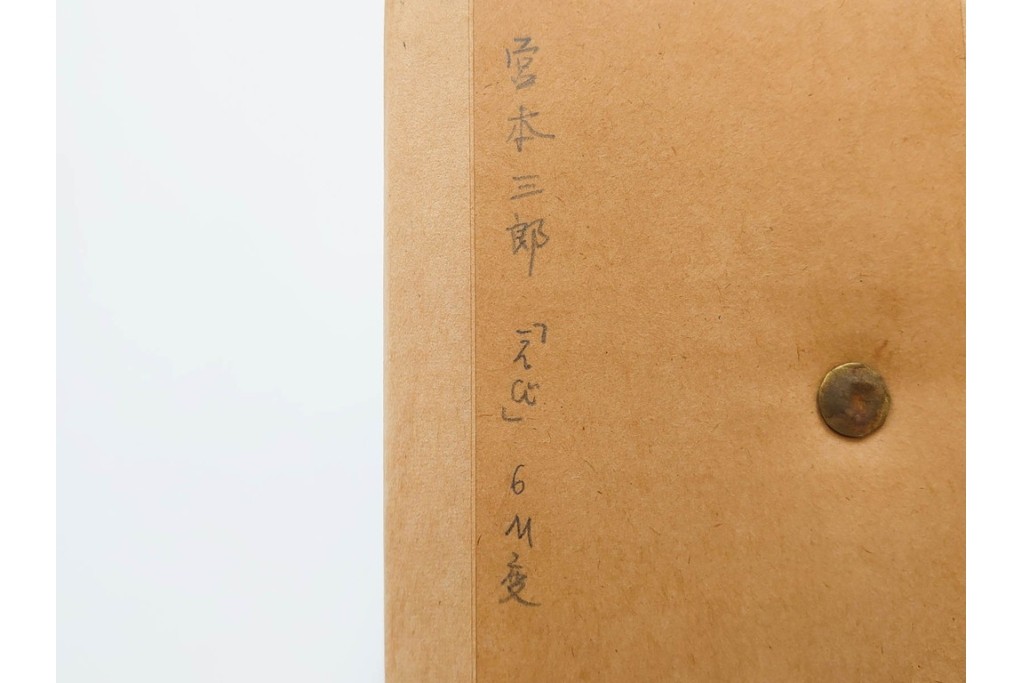 宮本三郎 「えび」 6M変